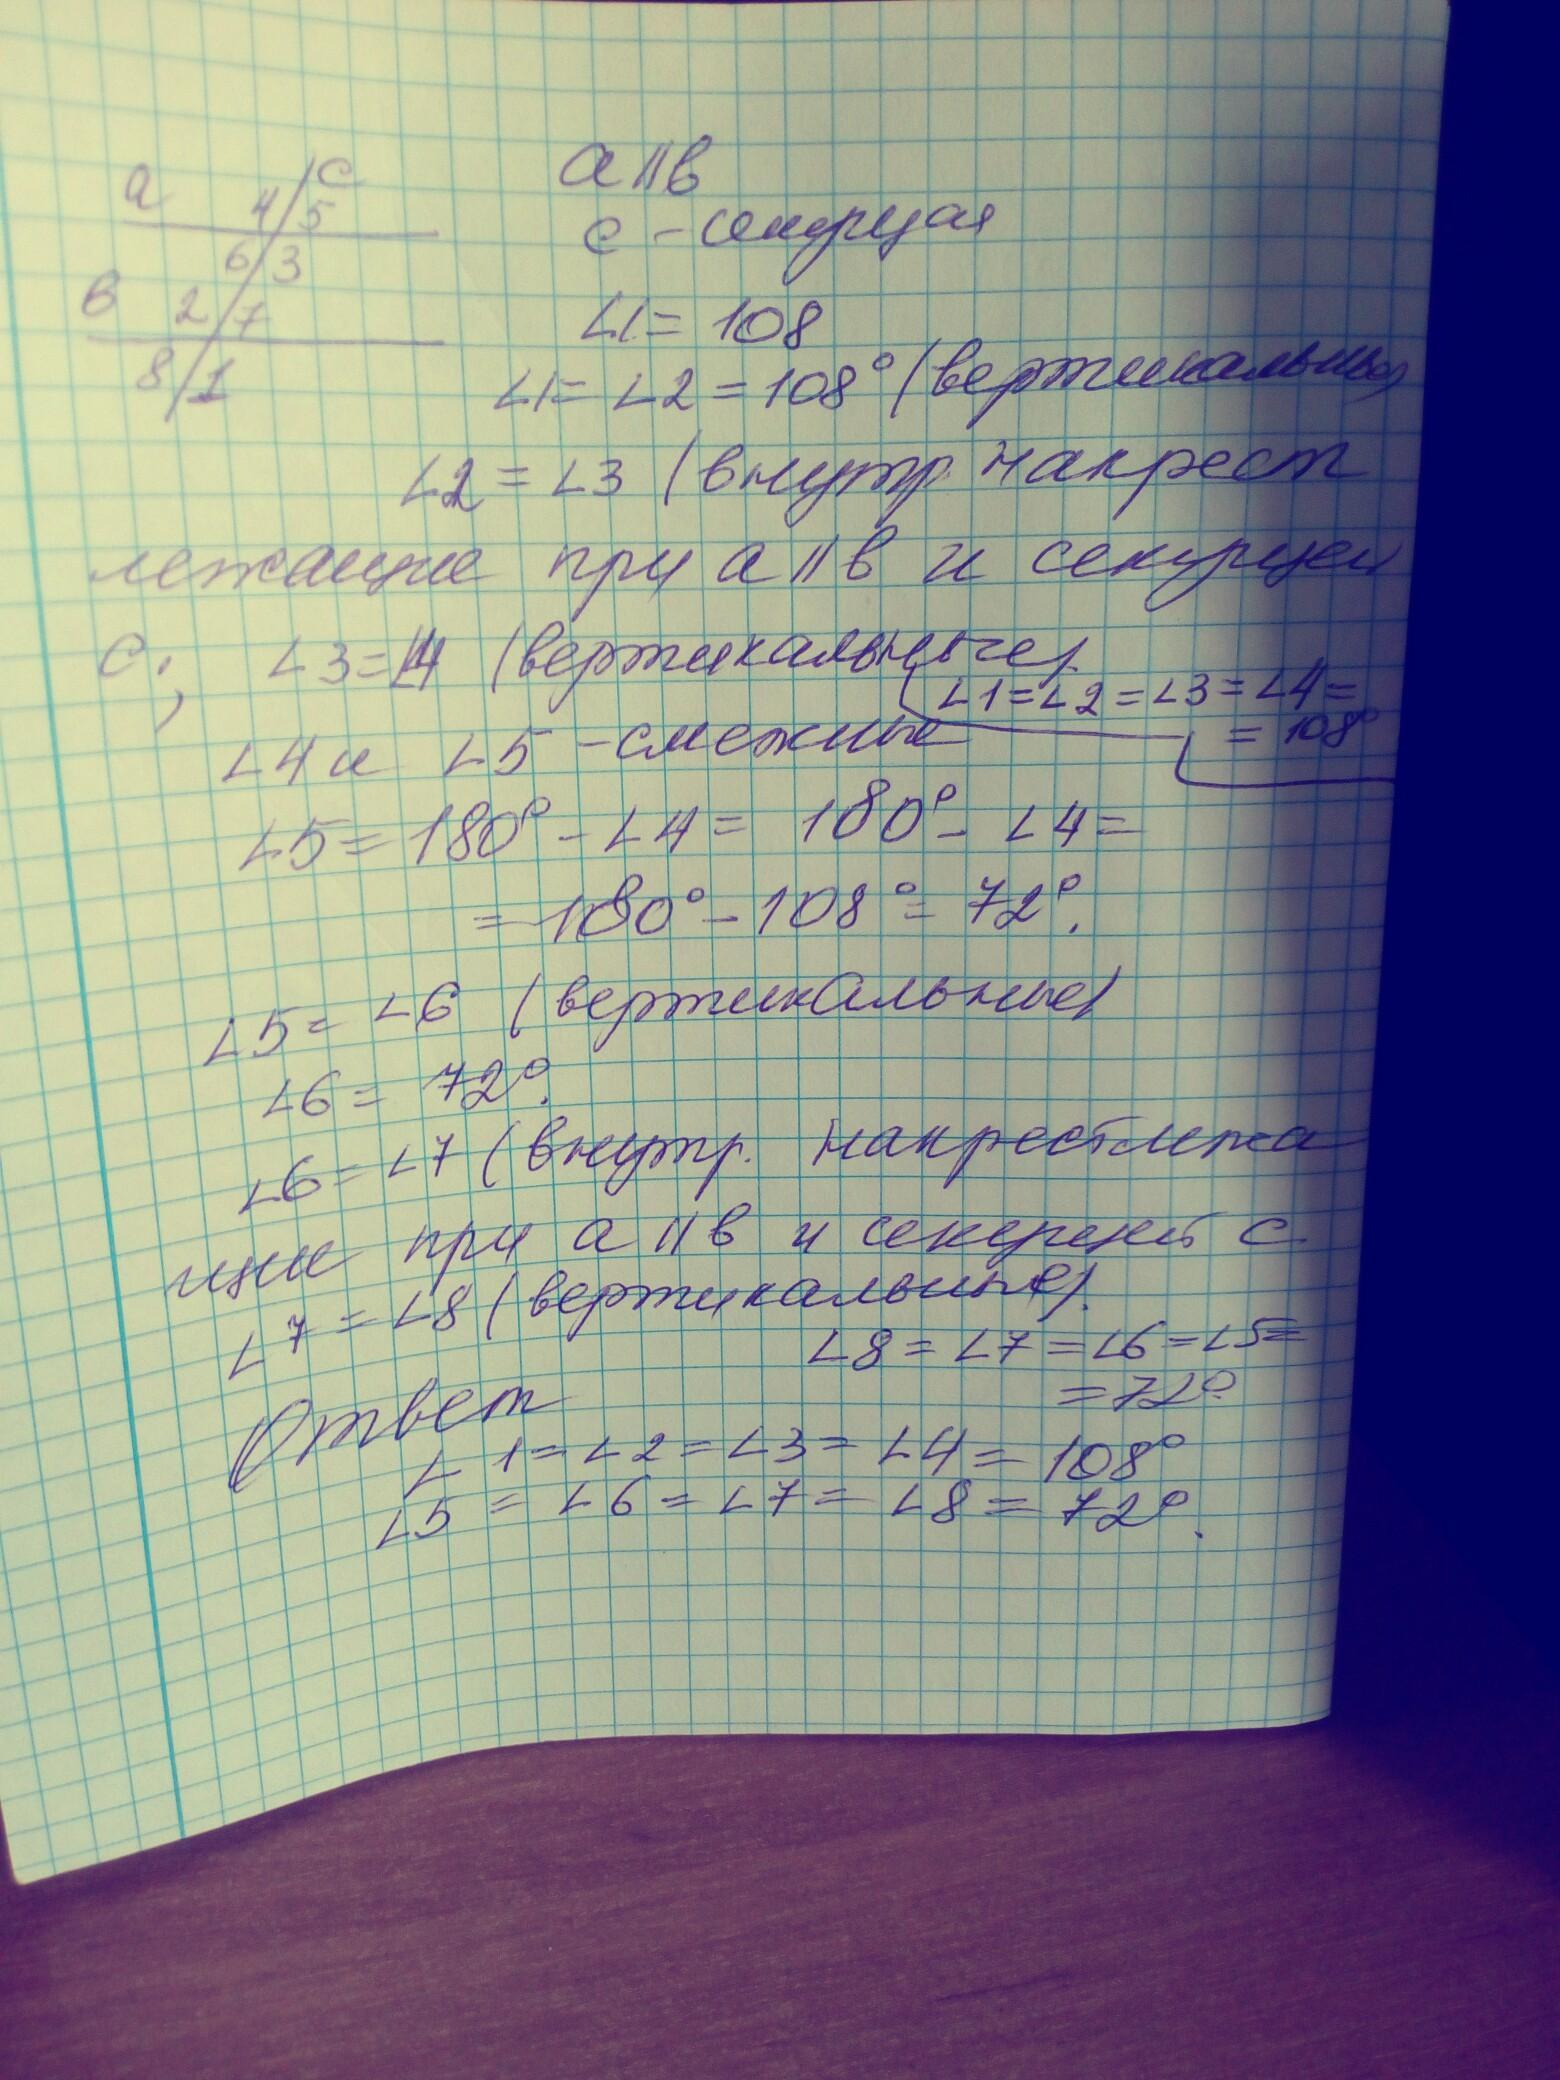 a c
4 5
6 3
в 2 7
8 1
a II в
c - секущая
∠1 = 108
∠1 = ∠2 = 108° (вертикальные)
∠2 = ∠3 (внутр. накрест
лежащие при a II в и секущей
c; ∠3 = ∠4 (вертикальные)
∠1 = ∠2 = ∠3 = ∠4 =
= 108°
∠4 и ∠5 - смежные
∠5 = 180° - ∠4 = 180° - ∠4 =
= 180° - 108° = 72°.
∠5 = ∠6 (вертикальные)
∠6 = 72°.
∠6 = ∠7 (внутр. накрестлежа
щие при a II в и секущей c.
∠7 = ∠8 (вертикальные).
∠8 = ∠7 = ∠6 = ∠5 =
= 72°
Ответ
∠1 = ∠2 = ∠3 = ∠4 = 108°
∠5 = ∠6 = ∠7 = ∠8 = 72°.